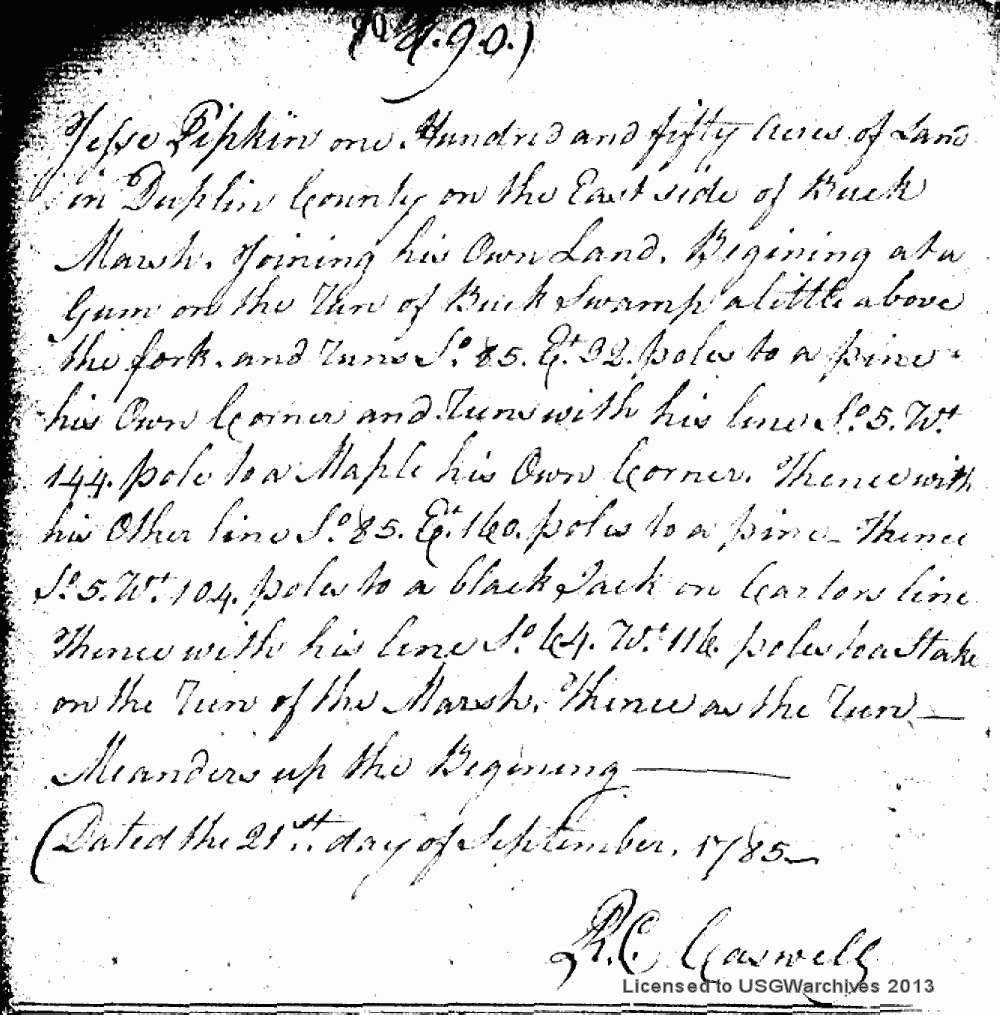 No. 90.)
Jesse Pipkin one Hundred and fifty Acres of Land
in Duplin County on the East side of Buck
Marsh. Joining his Own Land. Begining at a
Gum on the Run of Buck Swamp a little above
the fork. and Runs So. 85. Et. 92. poles to a pine
his Own Corner and Runs with his line So. 5. Wt.
144. pole to a Maple his Own Corner. Thence with
his Other line So. 85. Et. 160. poles to a pine - Thence
So. 5. Wt. 104. poles to a black Jack on line
Thence with his line So. 64. Wt. 116. poles to a Stake
on the Run of the Marsh. Thence as the Run —
Meanders up the Begining ———
(Dated the 21st. day of September. 1785 —
R. C. Caswell
Licensed to USGWarchives 2013